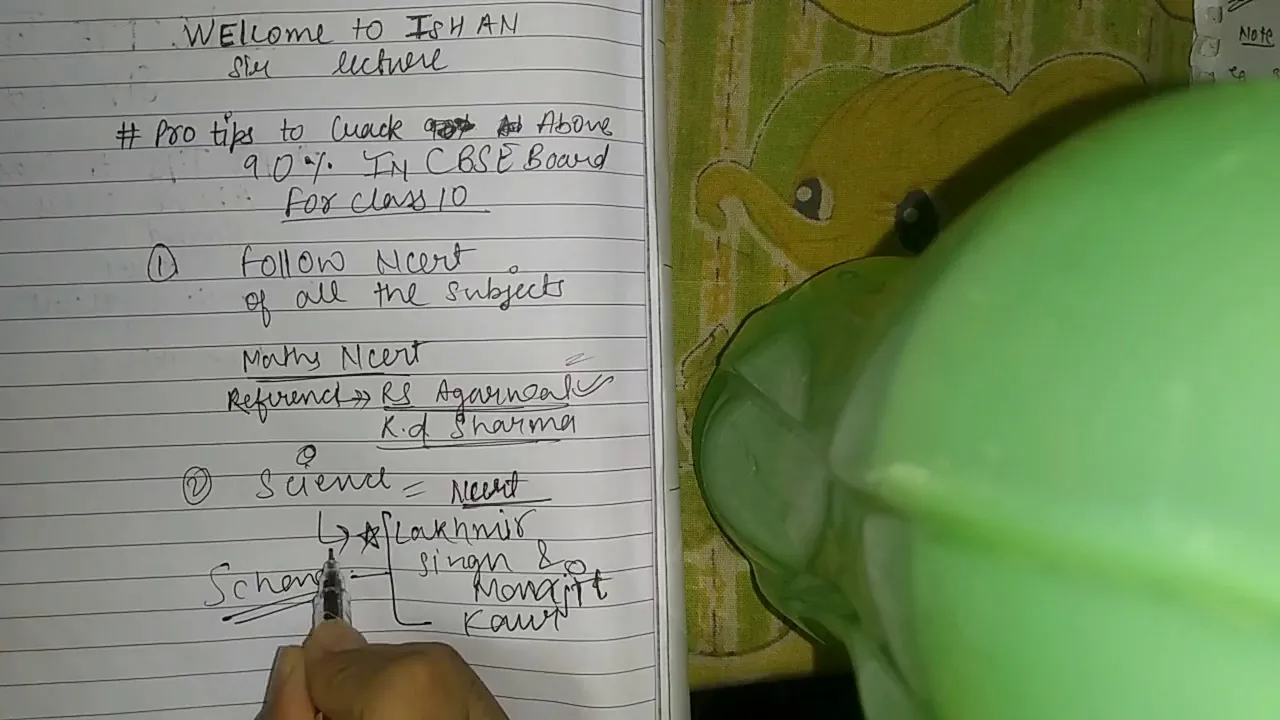 WElcome to ISHAN
Sir lecture
# Pro tips to Crack Above
90% IN CBSE Board
For class 10
① Follow Ncert
of all the subjects
Maths Ncert
Referenct →> RS Agarwal ✓
K.d Sharma
② Sciencl = Ncert
↳ ☆ Lakhmir
Singh &
Manxjit
Kaur
Note